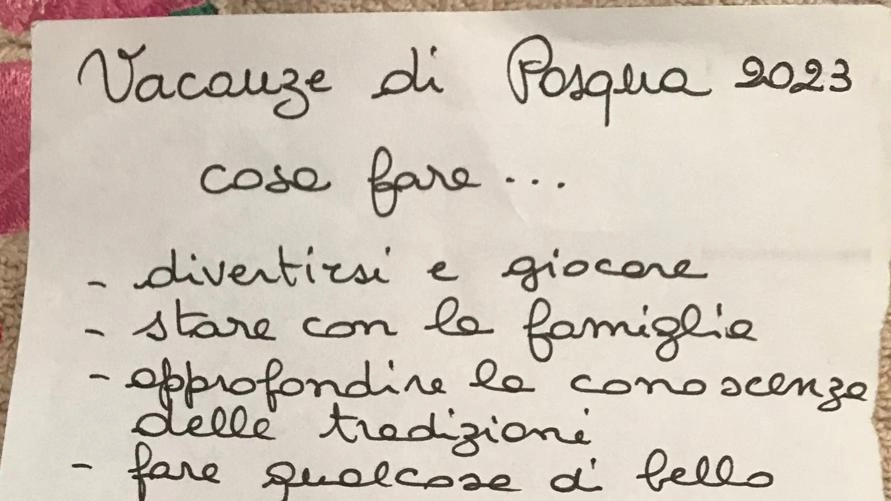 Vacanze di Pasqua 2023
cosa fare...
- divertirsi e giocare
- stare con la famiglia
- approfondire la conoscenza
delle tradizioni
- fare qualcosa di bello